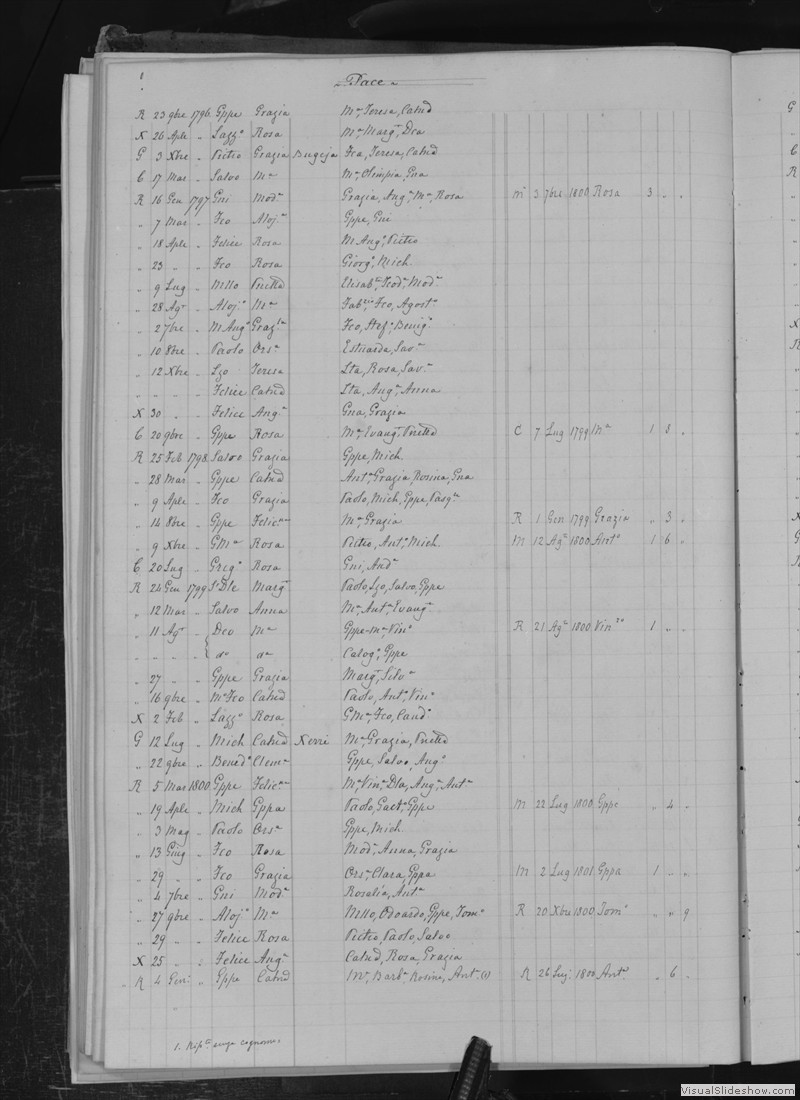 Pace
R 23 9bre 1796 Gppe Grazia Ma, Teresa, Catnd
N 26 Aple " Lazzo Rosa Ma Margta, Dca
G 3 Xbre " Pietro Grazia Bugeja Fca, Teresa, Catnd
C 17 Mar " Salvo Ma Ma, Olimpia, Gna
R 16 Gen 1797 Gni Moda Grazia, Anga, Ma, Rosa M 3 7bre 1800 Rosa 3 " "
" 7 Mar " Fco Aloja Gppe, Gni
" 18 Aple " Felice Rosa M Ango, Pietro
" 23 " " Fco Rosa Giorgo, Mich
" 9 Lug " Nello Elisaba, Teoda, Moda
" 28 Ago " Alojo Ma Fabrio, Fco, Agosto
" 2 7bre " M Ango Grazla Fco, Stefo, Benigo
" 10 8bre " Paolo Orsa Estuarda, Sava
" 12 Xbre " Lzo Teresa Lta, Rosa, Sava
" " " " Felice Catnd Lta, Anga, Anna
N 30 " " Felice Anga Gna, Grazia
C 20 9bre " Gppe Rosa Ma, Evanga, C 7 Lug 1799 Ma 1 8 "
R 25 Feb 1798 Salvo Grazia Gppe, Mich
" 28 Mar " Gppe Catnd Anta, Grazia, Rosina, Gna
" 9 Aple " Fco Grazia Paolo, Mich, Gppe, Pasqle
" 14 8bre " Gppe Felicna Ma, Grazia R 1 Gen 1799 Grazia " 3 "
" 9 Xbre " GMa Rosa Pietro, Anto, Mich M 12 Ago 1800 Anto 1 6 "
C 20 Lug " Grego Rosa Gni, Anda
R 24 Gen 1799 Margta Paolo, Lzo, Salvo, Gppe
" 12 Mar " Salvo Anna Ma, Anta, Evanga
" 11 Ago " Dco Ma Gppe-Ma, Vino R 21 Ago 1800 Vinzo 1 " "
" " " " do da Calogo, Gppe
" 27 " " Gppe Grazia Margta, Silva
" 16 9bre " Ma Fco Catnd Paolo, Anto, Vino
N 2 Feb " Lazzo Rosa GMa, Fco, Cando
G 12 Lug " Mich Catnd Xerri Ma, Grazia
" 22 9bre " Benedo Clema Gppe, Salvo, Ango
R 5 Mar 1800 Gppe Felicna Ma, Vina, Dta, Anga, Anta
" 19 Aple " Mich Gppa Paolo, Gaeto, Gppe M 22 Lug 1800 Gppe " 4 "
" 3 Mag " Paolo Orsa Gppe, Mich
" 13 Giug " Fco Rosa Moda, Anna, Grazia
" 29 " " Fco Grazia Orsa, Clara, Gppa M 2 Lug 1801 Gppa 1 " "
" 4 7bre " Gni Moda Rosalia, Anta
" 27 9bre " Alojo Ma Nello, Odoardo, Gppe, Tomo R 20 Xbre 1800 Tomo " " 9
" 29 " " Felice Rosa Pietro, Paolo, Salvo
N 25 " " Felice Anga Catnd, Rosa, Grazia
R 4 Gen " Gppe Catnd Ma, Barba, Rosina, Anta (1) R 26 1800 Anta " 6 "
1. senza cognome
VisualSlideshow.com